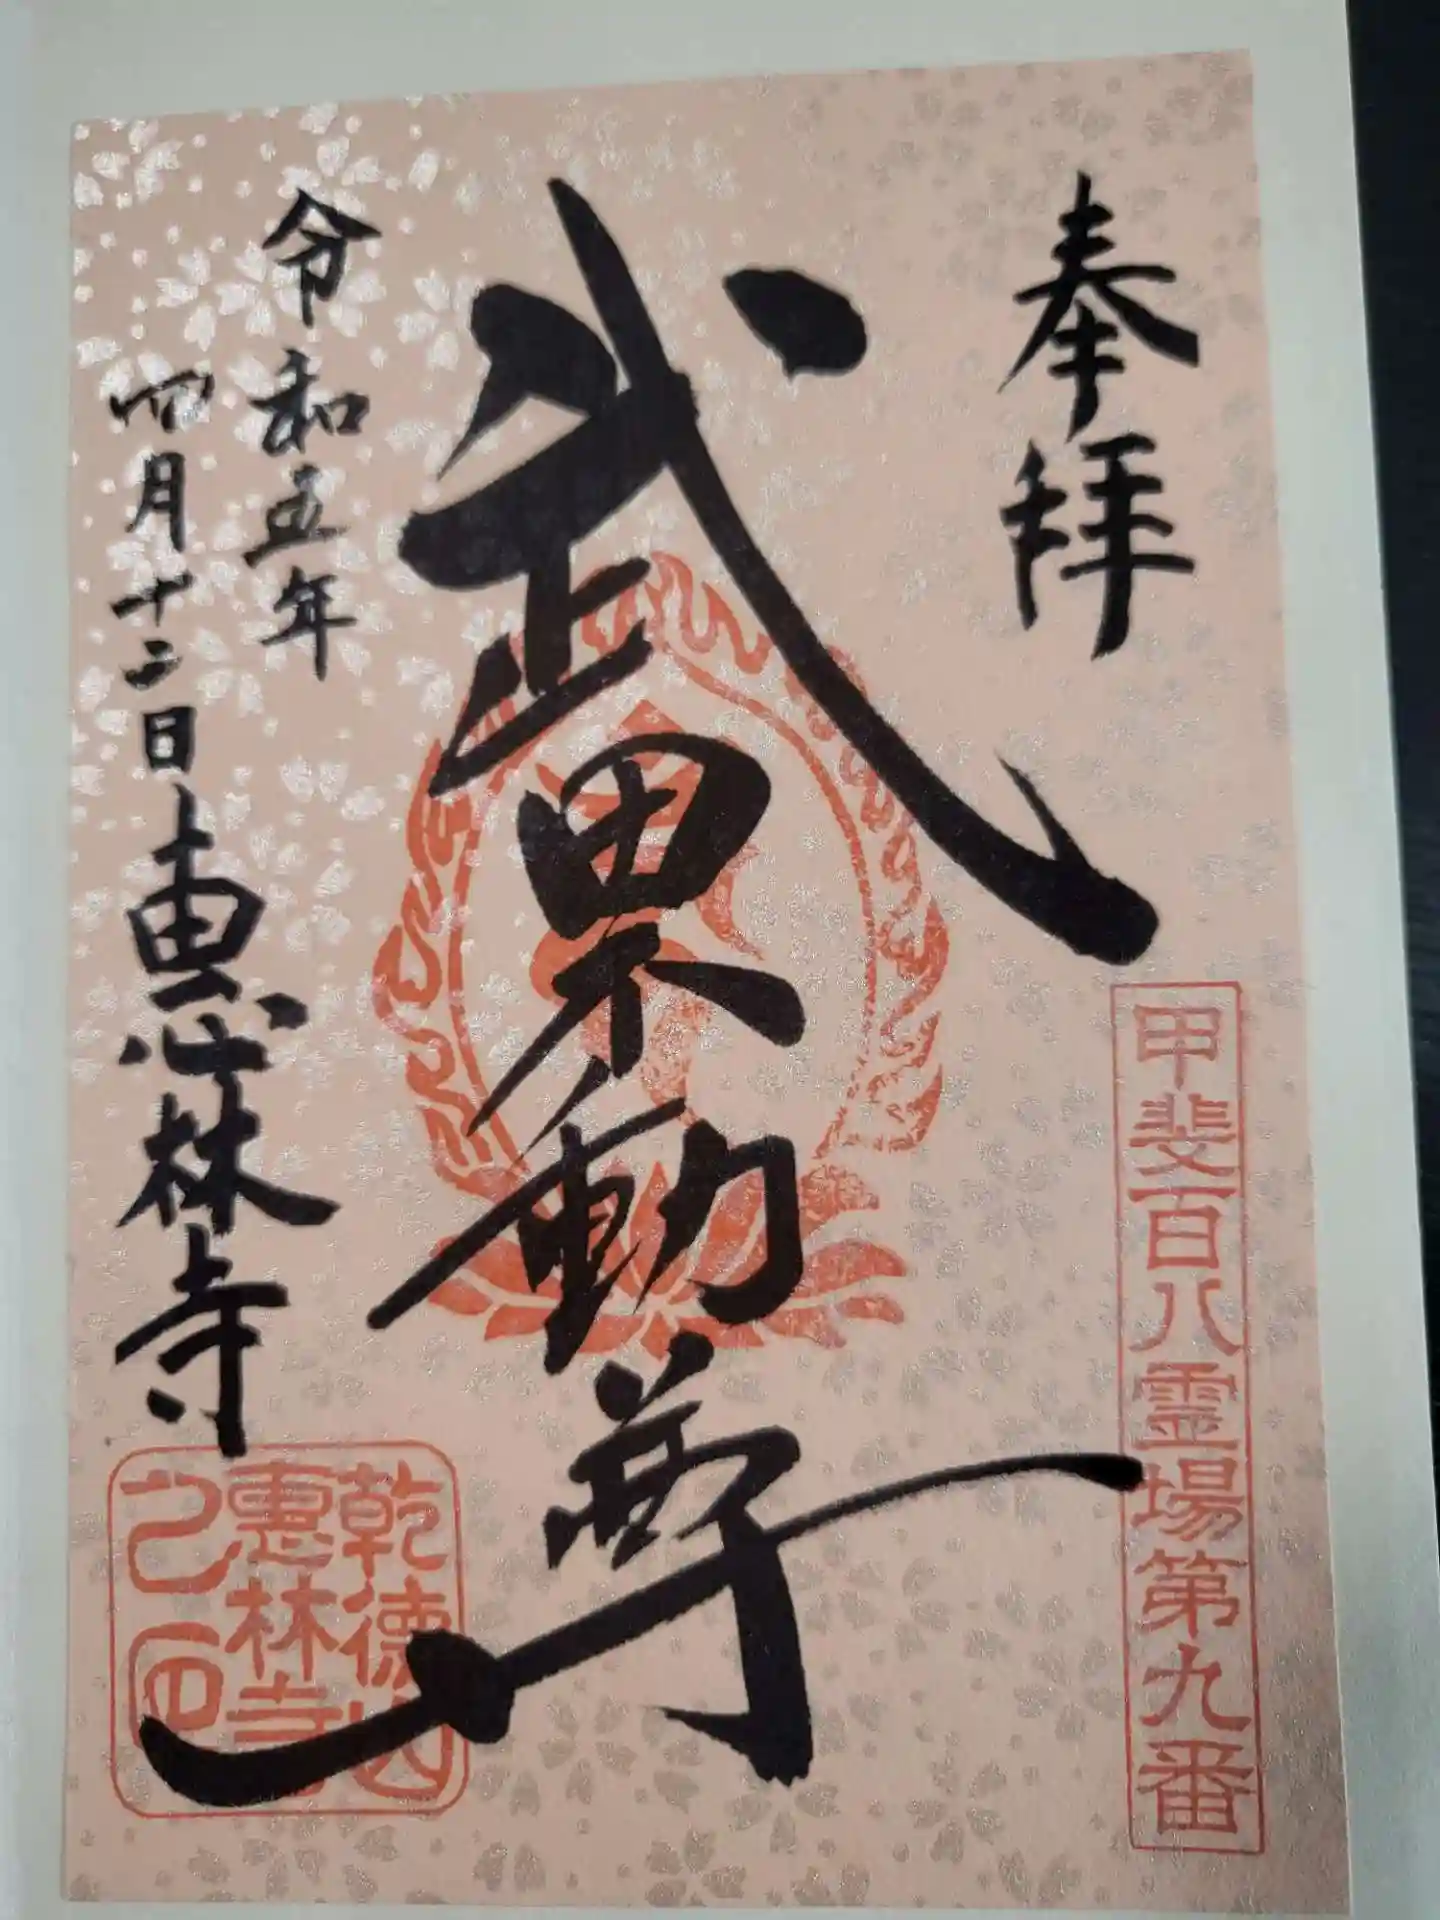 奉拝
甲斐百八霊場第九番
武田不動尊
令和五年
四月十二日
恵林寺
乾徳山
恵林寺
之印